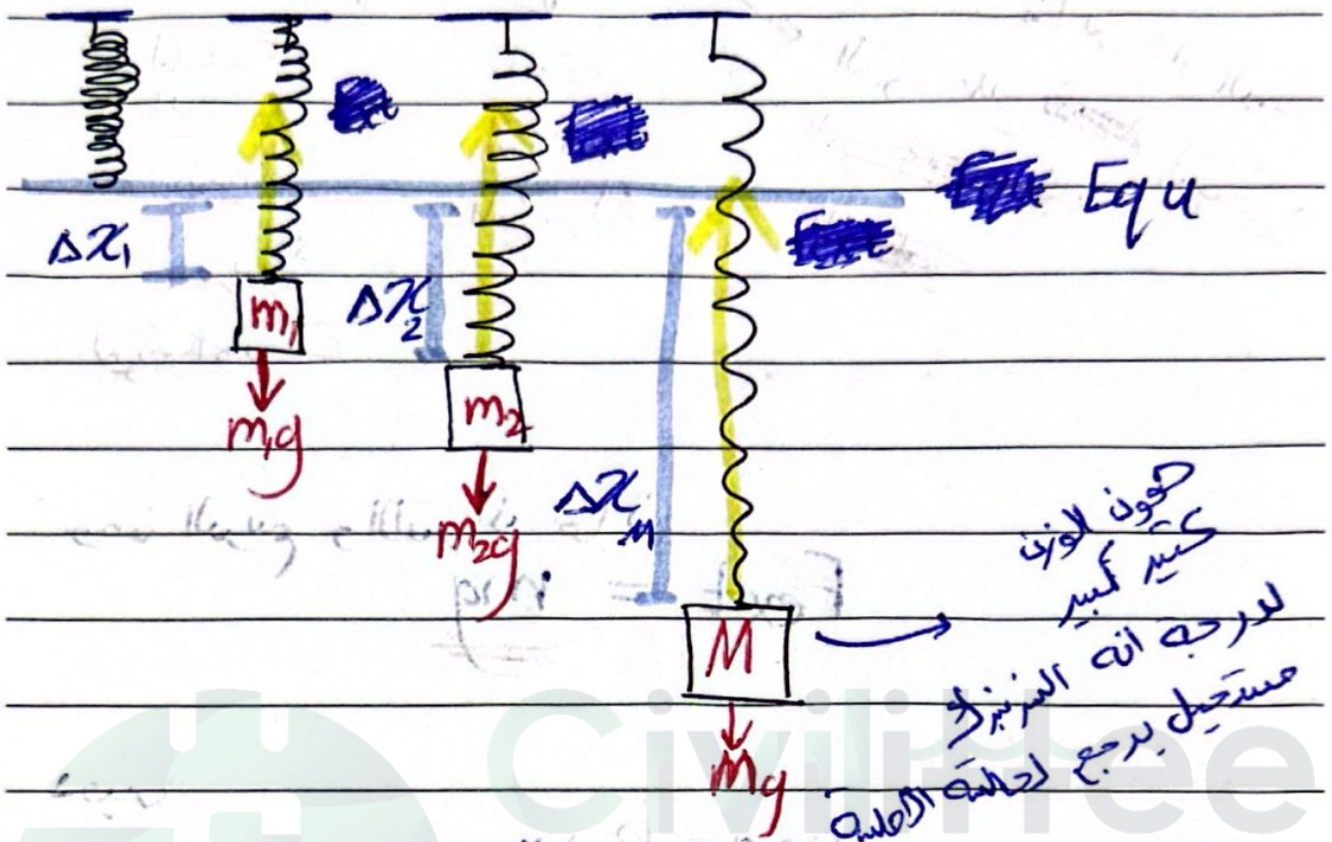 Equ
Δx₁
m₁
m₁g
Δx₂
m₂
m₂g
Δx
M
M
Mg
هون الوزن
كتير كبير
لدرجة انه الزنبرك
مستحيل يرجع لحالته الاصلية
CiviliTee